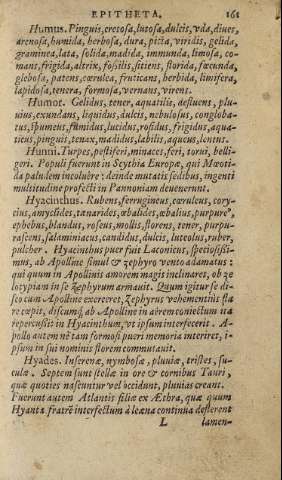 EPITHETA. 161
Humus. Pinguis, cretosa, lutosa, dulcis, vda, diues,
arenosa, humida, herbosa, dura, picta, viridis, gelida,
graminea, lata, solida, madida, immunda, limosa, co-
mans, frigida, altrix, fossilis, sitiens, florida, fœcunda,
glebosa, patens, cœrulea, fruticans, herbida, limifera,
lapidosa, tenera, formosa, vernans, virens.
Humor. Gelidus, tener, aquatilis, defluens, plu-
uius, exundans, liquidus, dulcis, nebulosus, congloba-
tus, spumeus, fumidus, lucidus, rosidus, frigidus, aqua-
ticus, pinguis, tenax, madidus, labilis, aqueus, lentus.
Hunni. Turpes, pestiferi, minaces, feri, torui, belli-
geri. Populi fuerunt in Scythia Europæ, qui Mœoti-
da paludem incoluêre: deinde mutatis sedibus, ingenti
multitudine profecti in Pannoniam deuenerunt.
Hyacinthus. Rubens, ferrugineus, cœruleus, cory-
cius, amyclides, tænarides, œbalides, œbalius, purpure⁹,
ephebus, blandus, roseus, mollis, florens, tener, purpu-
rascens, salaminiacus, candidus, dulcis, luteolus, ruber,
pulcher. Hyacinthus puer fuit Laconicus, speciosissi-
mus, ab Apolline simul & zephyro vento adamatus:
qui quum in Apollinis amorem magis inclinaret, ob ze
lotypiam in se Zephyrum armauit. Quum igitur se di-
sco cum Apolline exerceret, Zephyrus vehementius fla
re cœpit, discumq́ ab Apolline in aërem coniectum ita
repercussit in Hyacinthum, vt ipsum interfecerit. A-
pollo autem ne tam formosi pueri memoria interiret, i-
psum in sui nominis florem commutauit.
Hyades. Inserenæ, nymbosæ, pluuiæ, tristes, su-
culæ. Septem sunt stellæ in ore & cornibus Tauri,
quæ quoties nascuntur vel occidunt, pluuias creant.
Fuerunt autem Atlantis filiæ ex Æthra, quæ quum
Hyanta fratrē interfectum à leæna continua deflerent
L lamen-